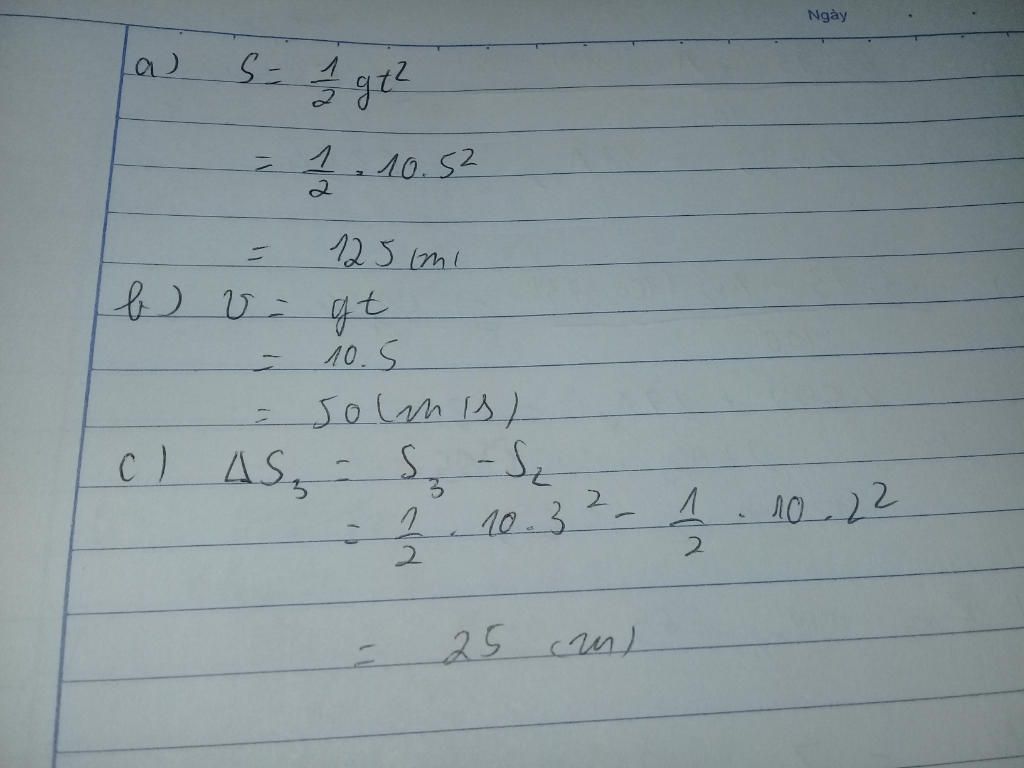 Ngày
a) S = 1/2 gt²
= 1/2 . 10.5²
= 125 (m)
b) v = gt
= 10.5
= 50 (m/s)
c) ΔS₃ = S₃ - S₂
= 1/2 . 10.3² - 1/2 . 10.2²
= 25 (m)